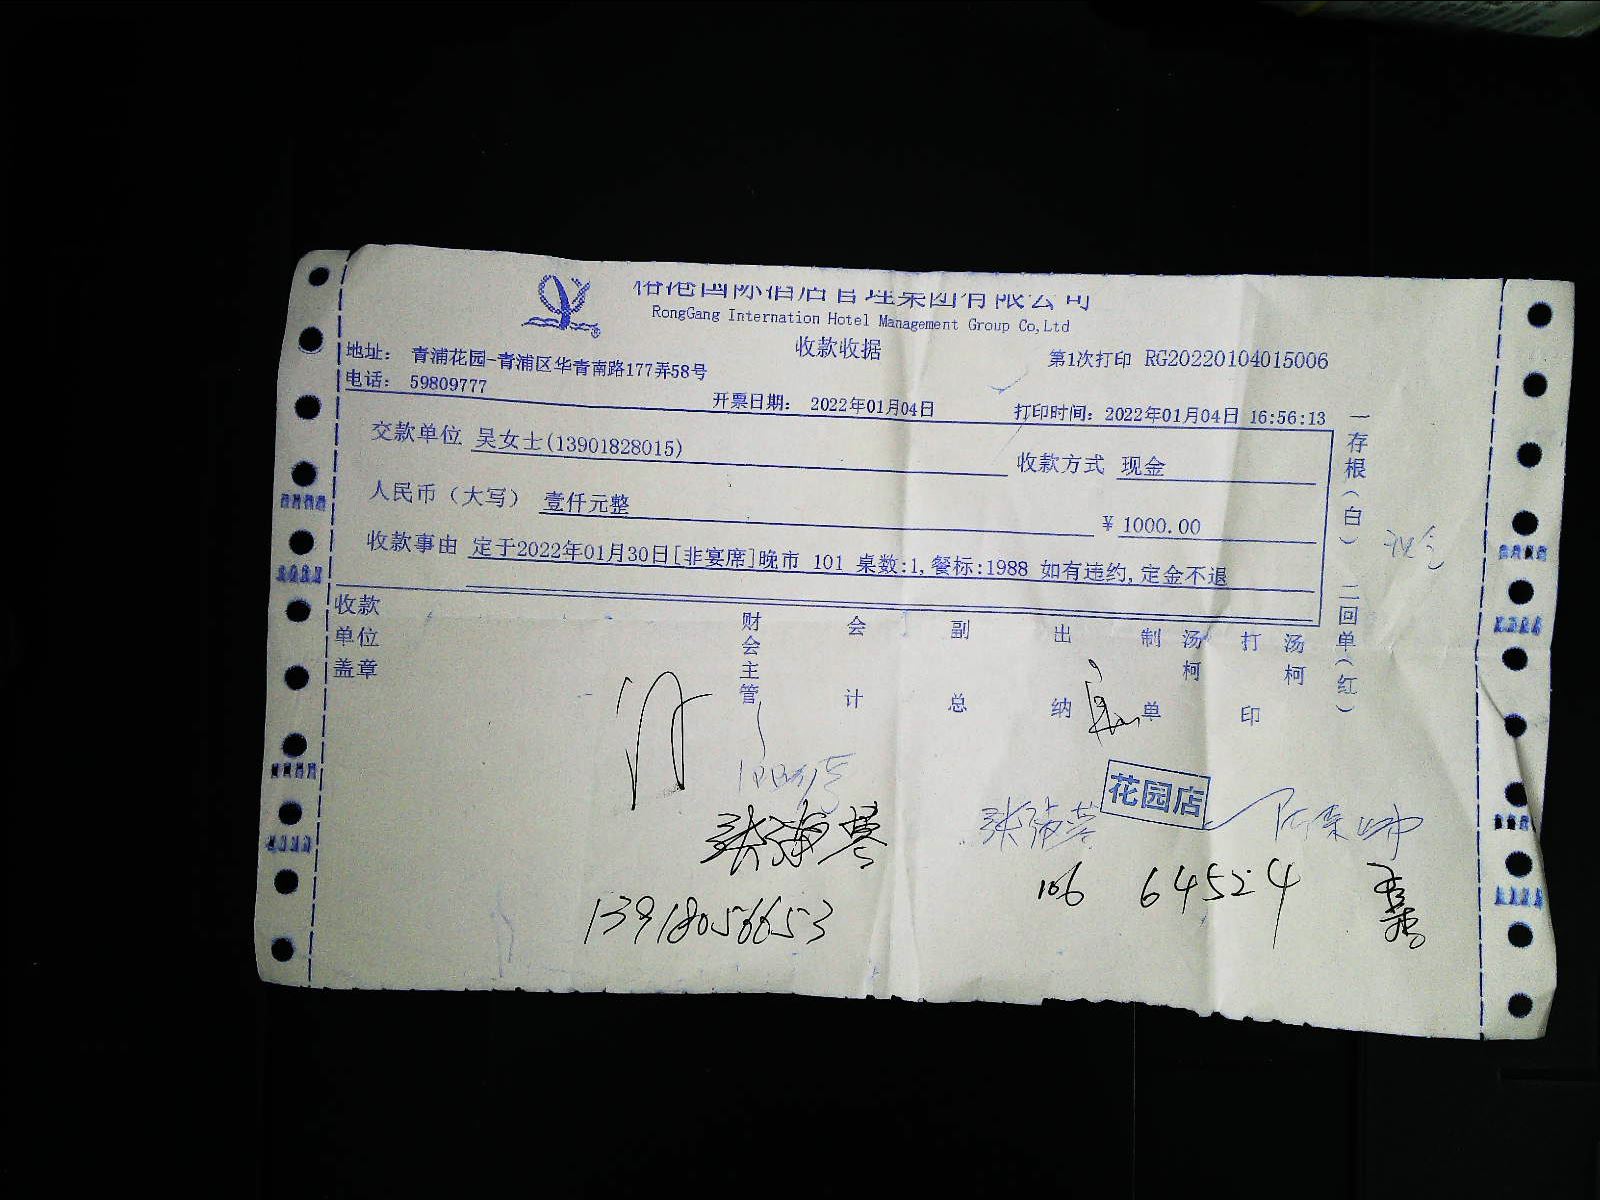 港国际酒店管理集团有限公司
RongGang Internation Hotel Management Group Co,Ltd
收款收据
第1次打印 RG20220104015006
地址： 青浦花园-青浦区华青南路177弄58号
电话： 59809777
开票日期： 2022年01月04日
打印时间：2022年01月04日 16:56:13
交款单位 吴女士(13901828015)
收款方式 现金
人民币（大写） 壹仟元整
¥ 1000.00
收款事由 定于2022年01月30日[非宴席]晚市 101 桌数:1,餐标:1988 如有违约,定金不退
一存根（白） 二回单（红）
现金
收款单位盖章
财会主管
会计
副总
出纳
制单
汤柯
打印
汤柯
花园店
张海琴
13918056653
106 64524